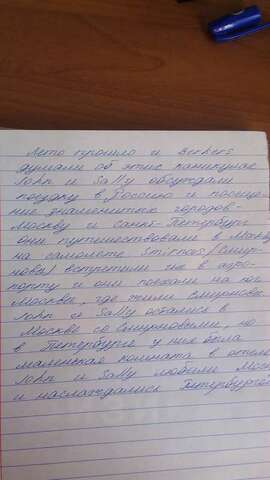 Лето прошло и Barkers
думали об этих каникулах
John и Sally обсуждали
поездку в Россию и посеще-
ние знаменитых городов-
Москву и Санкт-Петербург
они путешествовали в Москву
на самолете Smirnovs/Смир-
новы/ встретили их в аэро-
порту и они поехали на юг
Москвы, где жили Смирновы
John и Sally остались в
Москве со Смирновыми, но
в Петербурге у них была
маленькая комната в отеле
John и Sally любили Моск
и наслаждались Петербургом